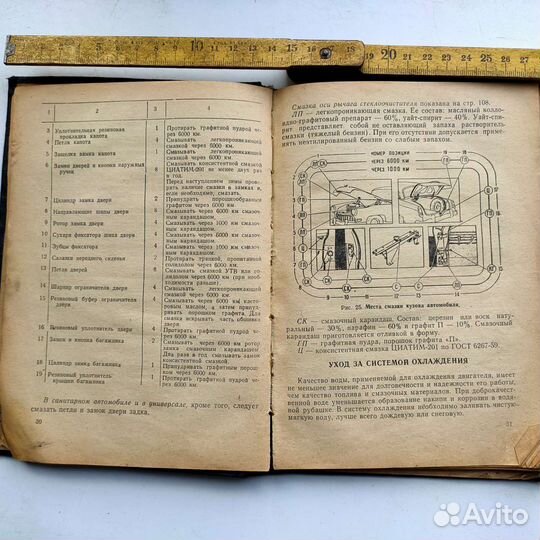 1 2 3 4
3 Уплотнительная резиновая прокладка капота 1 Протирать графитной пудрой через 6000 км
4 Петля капота 4 Смазывать легкопроникающей смазкой через 6000 км.
5 Защелка замка капота 1 Смазывать легкопроникающей смазкой через 6000 км.
6 Замки дверей и кнопки наружных ручек Смазывать консистентной смазкой ЦИАТИМ-201 не менее двух раз в год.
Перед наступлением зимы проверить наличие смазки в замках и, если необходимо, заправить.
7 Цилиндр замка двери 2 Припудрить порошкообразным графитом через 6000 км
8 Направляющие шипы двери 4 Смазывать через 6000 км смазочным карандашом.
9 Ротор замка двери 4 Смазывать через 1000 км смазочным карандашом.
10 Сухари фиксатора шипа двери 4 Смазывать через 6000 км смазочным карандашом.
11 Зубцы фиксатора 4 Смазывать через 1000 км смазочным карандашом
12 Салазки переднего сиденья Протереть тряпкой, пропитанной солидолом через 6000 км
13 Петля дверей 8 Смазывать смазкой УТВ или солидолом через 6000 км (при необходимости раньше).
14 Шарнир ограничителя двери 4 Смазывать легкопроникающей смазкой через 6000 км.
15 Резиновый буфер ограничителя двери Смазывать через 6000 км касторовым маслом, а затем припудривать порошком графита. Для смазки вскрывать часть обшивки двери
16 Резиновый уплотнитель двери 4 Протирать графитной пудрой через 6000 км
17 Замок и кнопка багажника 1 Смазывать через 6000 км ротор замка смазочным карандашом
Два раза в год замок смазывать консистентной смазкой
18 Цилиндр замка багажника 1 Припудривать графитным порошком через 6000 км.
19 Резиновый уплотнитель крышки багажника 1 Протирать графитной пудрой через 6000 км
В санитарном автомобиле и в универсале, кроме того, следует
смазать петли и замок двери задка.
30
Смазка оси рычага стеклоочистителя показана на стр. 108.
ЛП — легкопроникающая смазка. Ее состав: масляный коллоидно-графитовый препарат — 60%, уайт-спирит — 40%. Уайт-спирит представляет собой не оставляющий запаха растворитель (тяжелый бензин). При его отсутствии допускается применять неэтилированный бензин со слабым запахом.
НОМЕР ПОЗИЦИИ
ЧЕРЕЗ 6000 КМ
ЧЕРЕЗ 1000 КМ
Рис. 25. Места смазки кузова автомобиля.
СК — смазочный карандаш. Состав: церезин или воск натуральный — 30%, парафин — 60% и графит П — 10%. Смазочный карандаш приготовляется отливкой в форму.
ГП — графитная пудра, порошок графита «П».
Ц — консистентная смазка ЦИАТИМ-201 по ГОСТ 6267-59.
УХОД ЗА СИСТЕМОЙ ОХЛАЖДЕНИЯ
Качество воды, применяемой для охлаждения двигателя, имеет
не меньшее значение для долговечности и надежности его работы,
чем качество топлива и смазочных материалов. При доброкачественной воде уменьшается образование накипи и коррозии в водяной рубашке. В систему охлаждения необходимо заливать чистую
мягкую воду, лучше всего дождевую или снеговую.
31
10 20 21 22 23 24 25 26 27
Avito